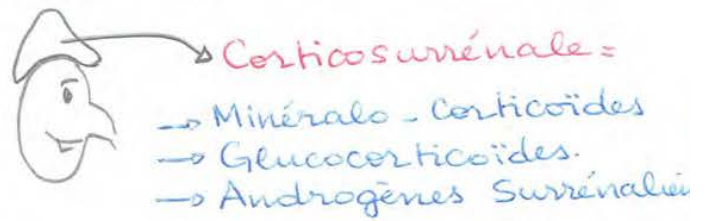 Corticosurrénale =
→ Minéralo-Corticoïdes
→ Glucocorticoïdes.
→ Androgènes Surrénalie